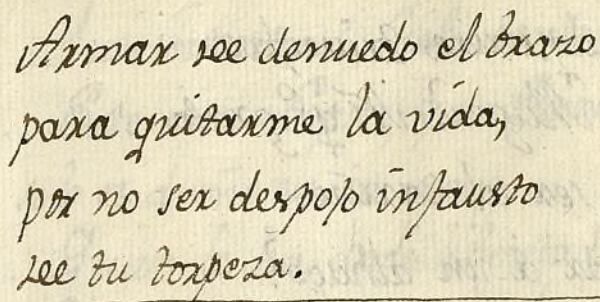 Armar de denuedo el brazo
para quitarme la vida,
por no ser despojo infausto
de tu torpeza.